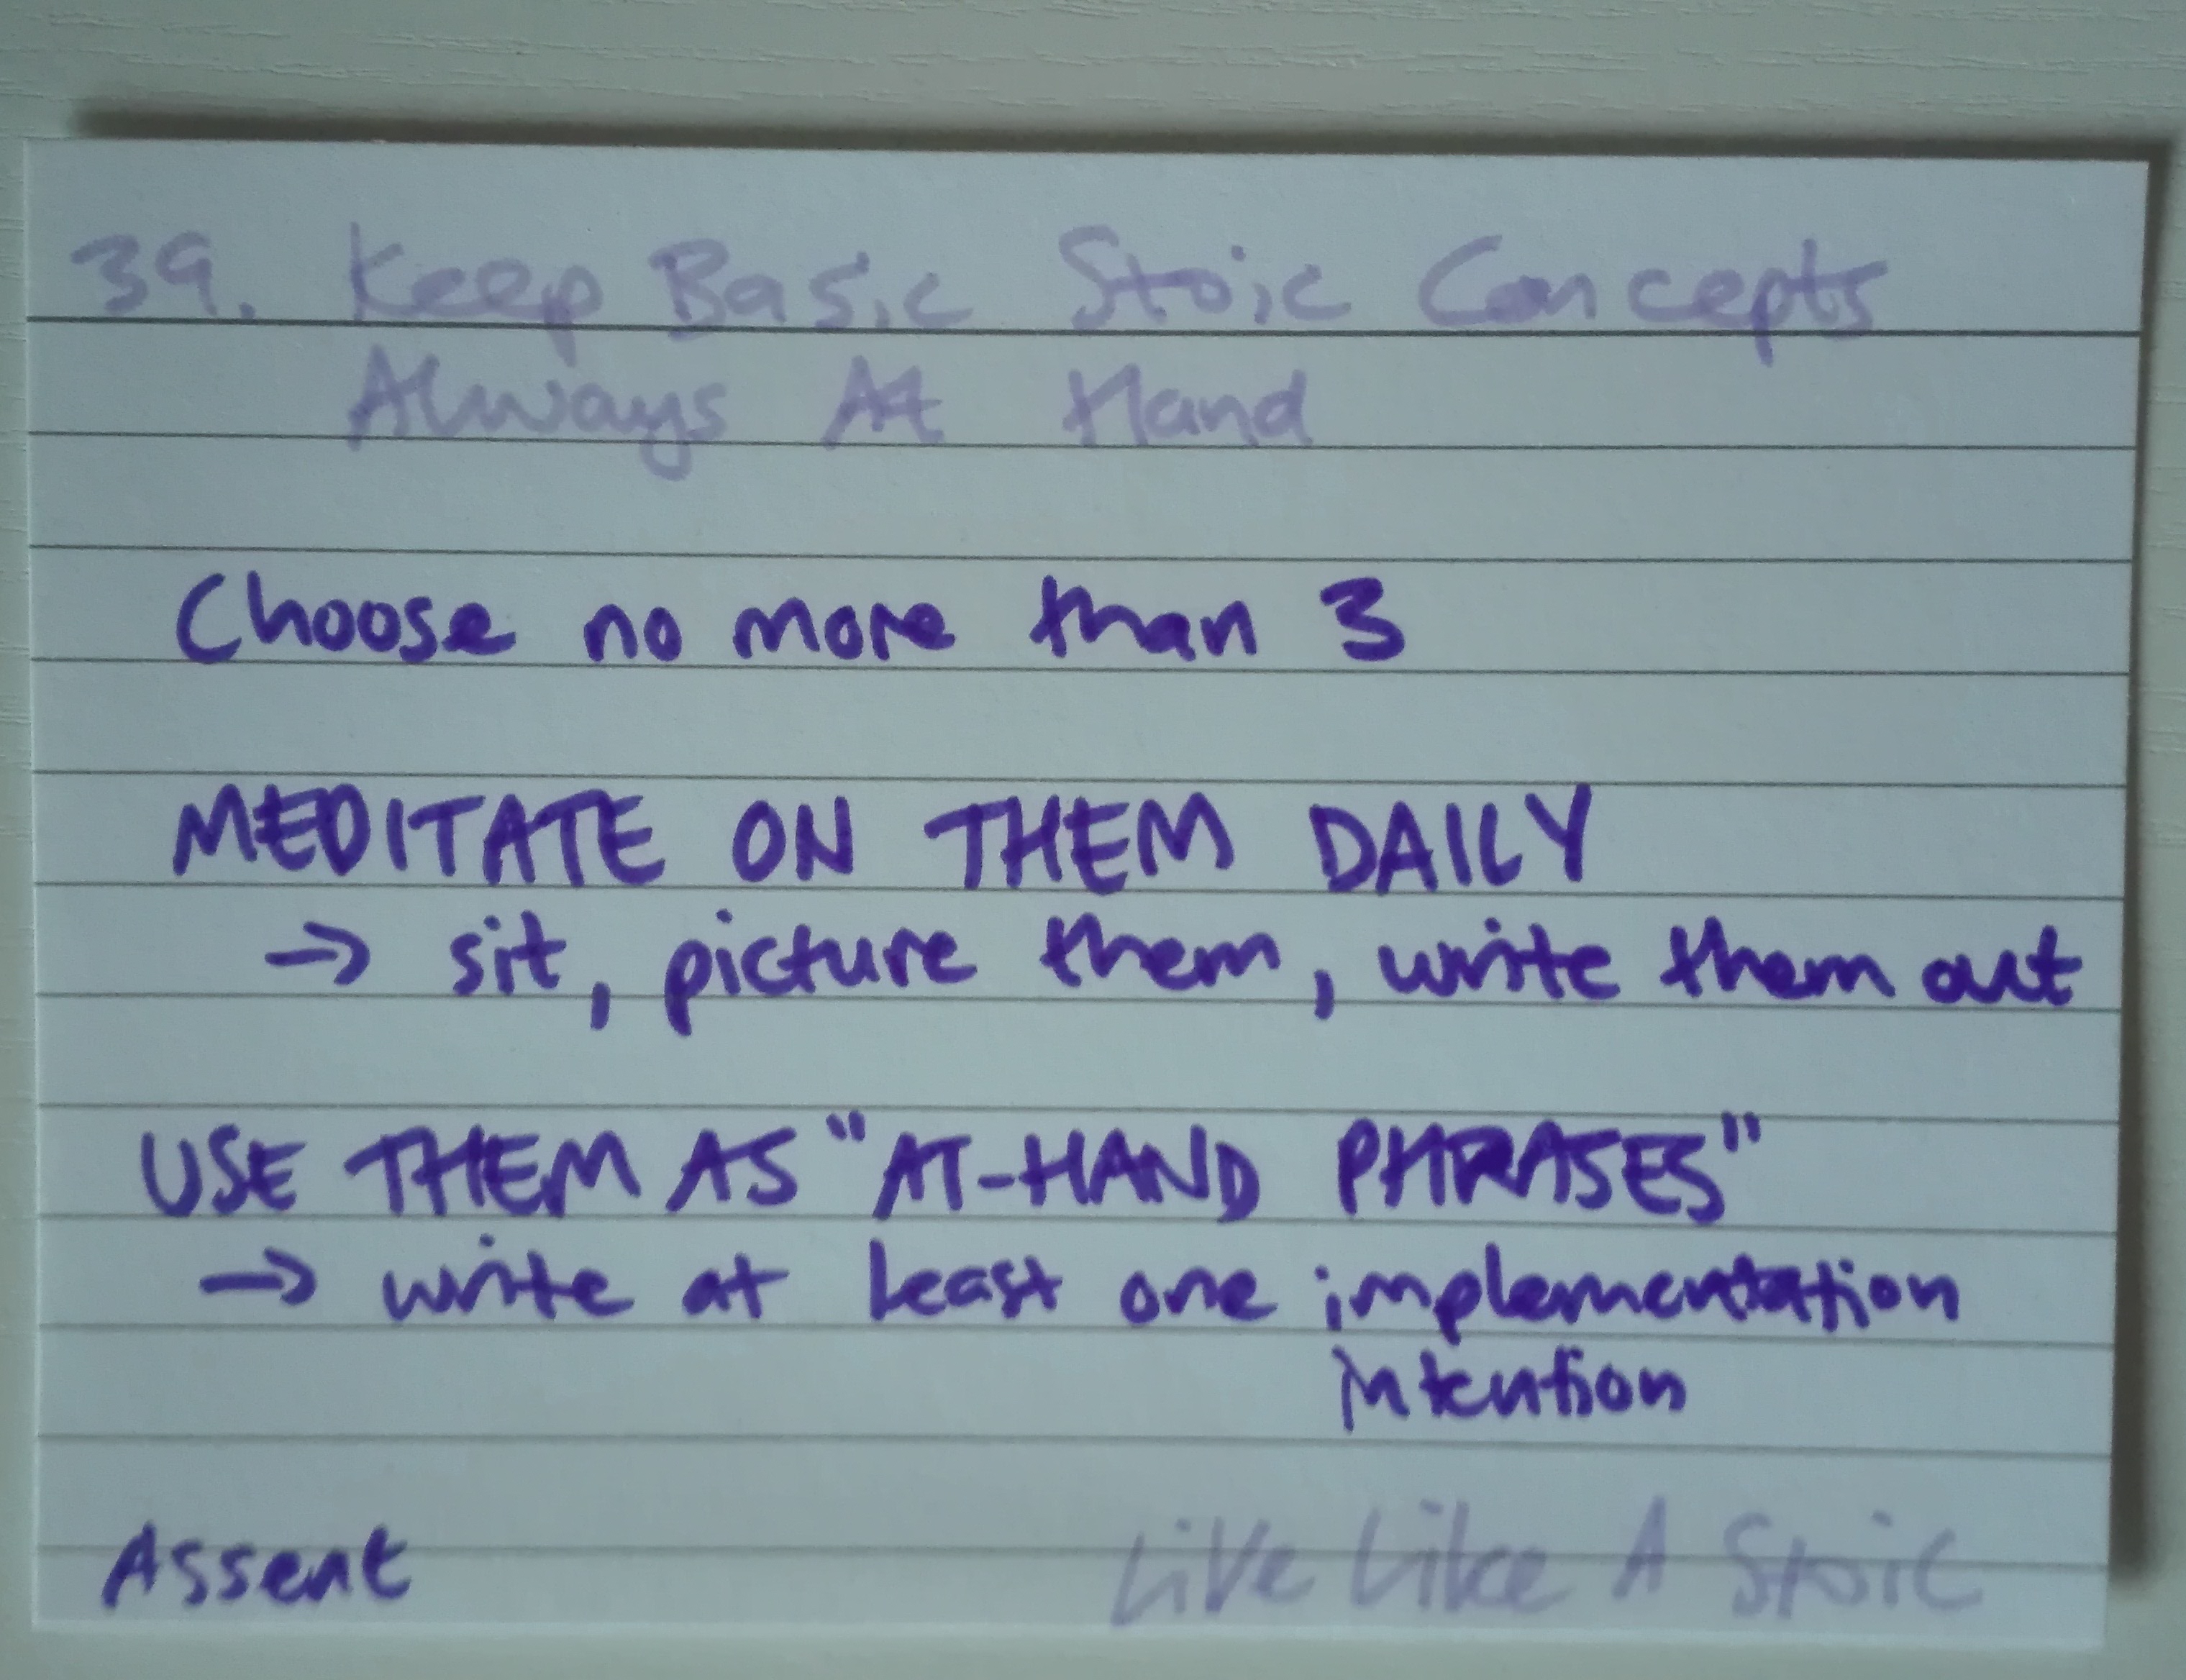 39. Keep Basic Stoic Concepts
Always At Hand
Choose no more than 3
MEDITATE ON THEM DAILY
→ sit, picture them, write them out
USE THEM AS "AT-HAND PHRASES"
→ write at least one implementation
intention
Assent
Live Like A Stoic